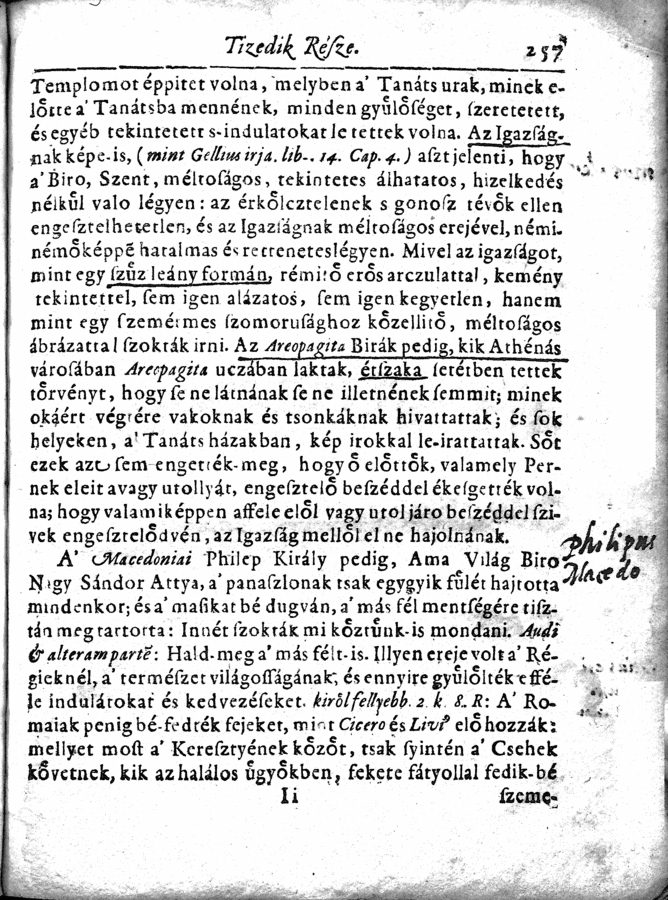 Tizedik Réſze. 257
Templomot éppitet volna, melyben a' Tanáts urak, minek e-
lőtte a' Tanátsba mennének, minden gyűlőſéget, ſzeretetett,
és egyéb tekintetett s-indulatokat le tettek volna. Az Igazſág-
nak képe-is, (mint Gellius irja. lib-. 14. Cap. 4.) aſzt jelenti, hogy
a' Biro, Szent, méltoſágos, tekintetes álhatatos, hizelkedés
nélkűl valo légyen: az érkőlcztelenek s gonoſz tévők ellen
engeſztelhetetlen, és az Igazſágnak méltoſágos erejével, némi-
némőképpē hatalmas és rettenetes légyen. Mivel az igazſágot,
mint egy ſzűz leány formán, rémitő erős arczulattal, kemény
tekintettel, ſem igen alázatos, ſem igen kegyetlen, hanem
mint egy ſzemérmes ſzomoruſághoz kőzellitő, méltoſágos
ábrázattal ſzokták irni. Az Areopagita Birák pedig, kik Athénás
városában Areopagita uczában laktak, étſzaka ſetétben tettek
tőrvényt, hogy ſe ne látnának ſe ne illetnének ſemmit; minek
okáért végtére vakoknak és tsonkáknak hivattattak; és ſok
helyeken, a' Tanáts házakban, kép irokkal le-irattattak. Sőt
ezek azt ſem engették-meg, hogy ő előttők, valamely Per-
nek eleit avagy utollyát, engeſztelő beſzéddel ékeſgették vol-
na; hogy valamiképpen affele elől vagy utol járo beſzéddel ſzi-
vek engeſztelődvén, az Igazſág mellől el ne hajolnának.
A' Macedoniai Philep Király pedig, Ama Világ Biro
Nagy Sándor Attya, a' panaſzlonak tsak egygyik fűlét hajtotta
mindenkor; és a' maſikat bé dugván, a' más fél mentſégére tiſz-
tán meg tartotta: Innét ſzokták mi kőztűnk-is mondani. Audi
& alteram partē: Hald-meg a' más félt-is. Illyen ereje volt a' Ré-
gieknél, a' termeſzet világoſſágának, és ennyire gyűlőlték effé-
le indulátokat és kedvezéſeket. kirőlfellyebb. 2. k. 8. R: A' Ro-
maiak penig bé-fedték fejeket, mint Cicero és Livi⁹ elő hozzák:
mellyet moſt a' Kereſztyének kőzőt, tsak ſzintén a' Csehek
kővetnek, kik az halálos űgyőkben, fekete fátyollal fedik-bé
Ii ſzeme-
philipus
Macedo